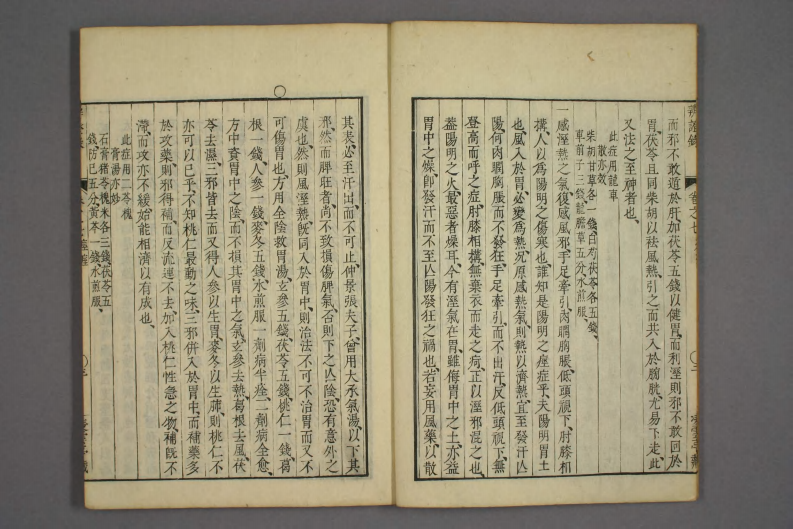 辨證錄
卷之七
而邪不敢遁於肝加茯苓五錢以健胃而利溼則邪不敢回於
胃茯苓且同柴胡以祛風熱引之而共入於膀胱尤易下走此
又法之至神者也
此症用龍車
散亦效
柴胡甘草各一錢白芍茯苓各五錢
車前子三錢龍膽草五分水煎服
一感溼熱之氣復感風邪手足牽引肉䐃胸脹低頭視下肘膝相
搆人以為陽明之傷寒也誰知是陽明之痙症乎夫陽明胃土
也風入於胃必變為熱況原感熱氣則熱以濟熱宜至發汗亡
陽何肉䐃胸脹而不發狂手足牽引而不出汗反低頭視下無
登高而呼之症肘膝相搆無棄衣而走之病正以溼邪混之也
蓋陽明之火最惡者燥耳今有溼氣在胃雖侮胃中之土亦益
胃中之燥即發汗而不至亡陽發狂之禍也若妄用風藥以散
其表必至汗出而不可止仲景張夫子曾用大承氣湯以下其
邪然而脾旺者尚不致損傷脾氣否則下之亡陰恐有意外之
虞也然則風溼熱既同入於胃中則治法不可不治胃而又不
可傷胃也方用全陰救胃湯玄參五錢茯苓五錢桃仁一錢葛
根一錢人參一錢麥冬五錢水煎服一劑病半痊二劑病全愈
方中資胃中之陰而不損其胃中之氣玄參去熱葛根去風茯
苓去濕三邪皆去而又得人參以生胃麥冬以生肺則桃仁不
亦可以已乎不知桃仁最動之味三邪併入於胃中而補藥多
於攻藥則邪得補而反流連不去加入桃仁性急之物補既不
滯而攻亦不緩始能相濟以有成也
此症用二苓槐
膏湯亦妙
石膏猪苓槐米各三錢茯苓五
錢防已五分黃芩一錢水煎服